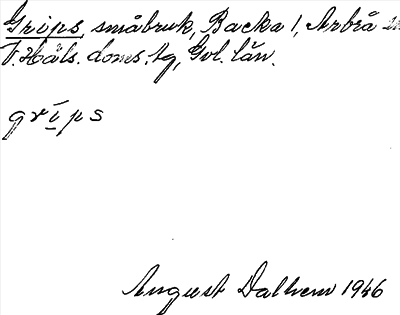 Grips, småbruk, Backa 1, Arbrå sn
V. Häls. doms. tg, Gvl. län.
grips
August Dalhem 1946